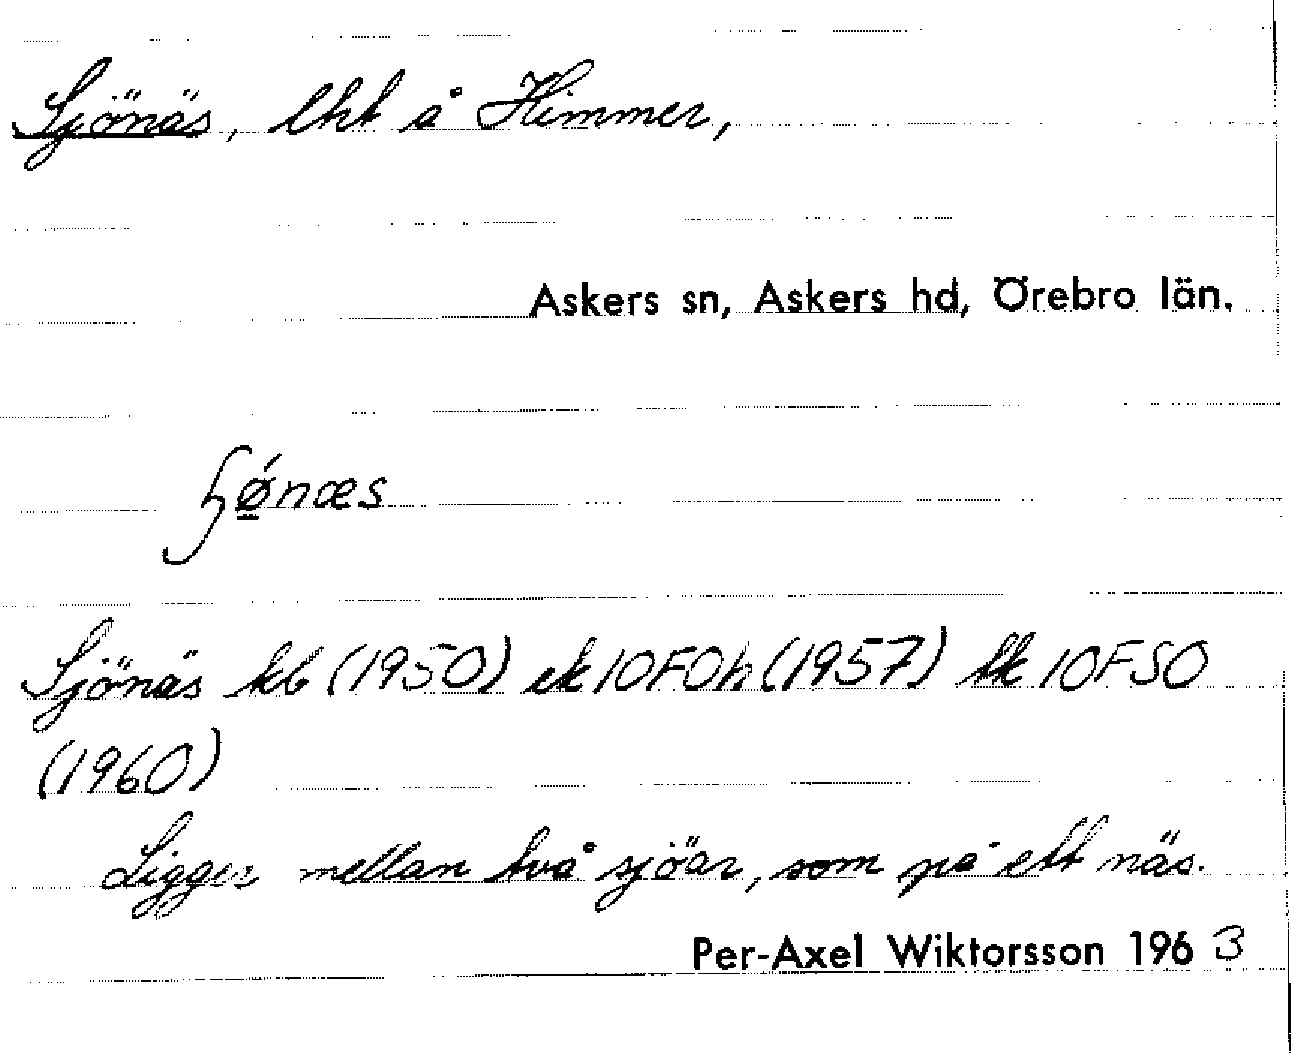 Sjönäs, lht å Himmer,
Askers sn, Askers hd, Örebro län.
ɧǿnæs
Sjönäs kb (1950) ek 10F0h (1957) tk 10FSO
(1960)
Ligger mellan två sjöar, som på ett näs.
Per-Axel Wiktorsson 1963